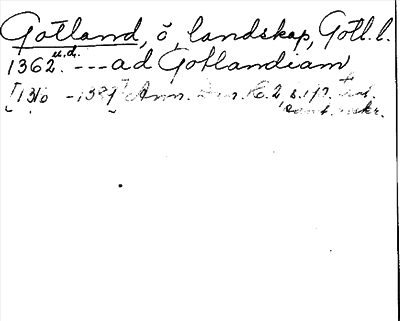 Gotland, ö, landskap, Gotl. l.
1362 u.d. --- ad Gotlandiam
[1316 - 1389] Ann. H. 2 s.